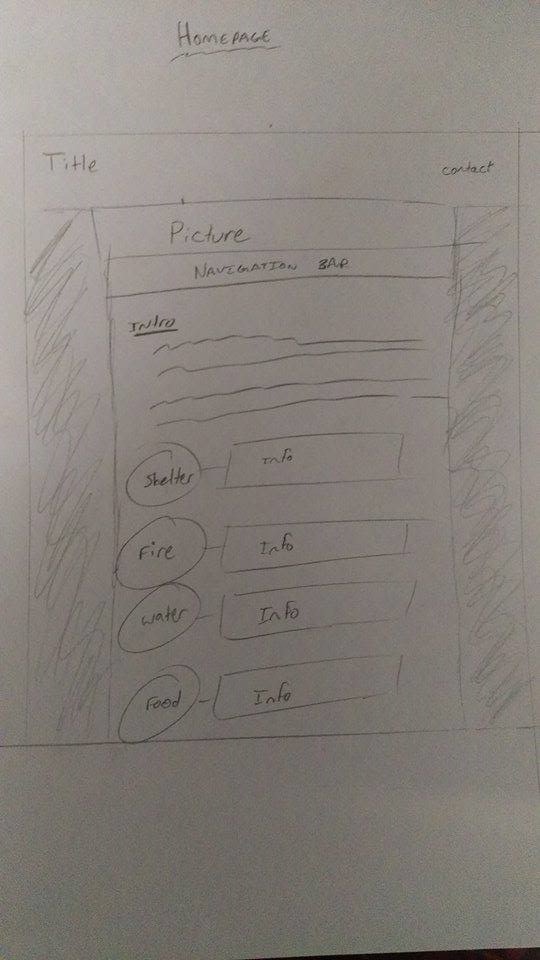 HOMEPAGE
Title
contact
Picture
NAVIGATION BAR
Intro
Shelter
Info
Fire
Info
water
Info
Food
Info